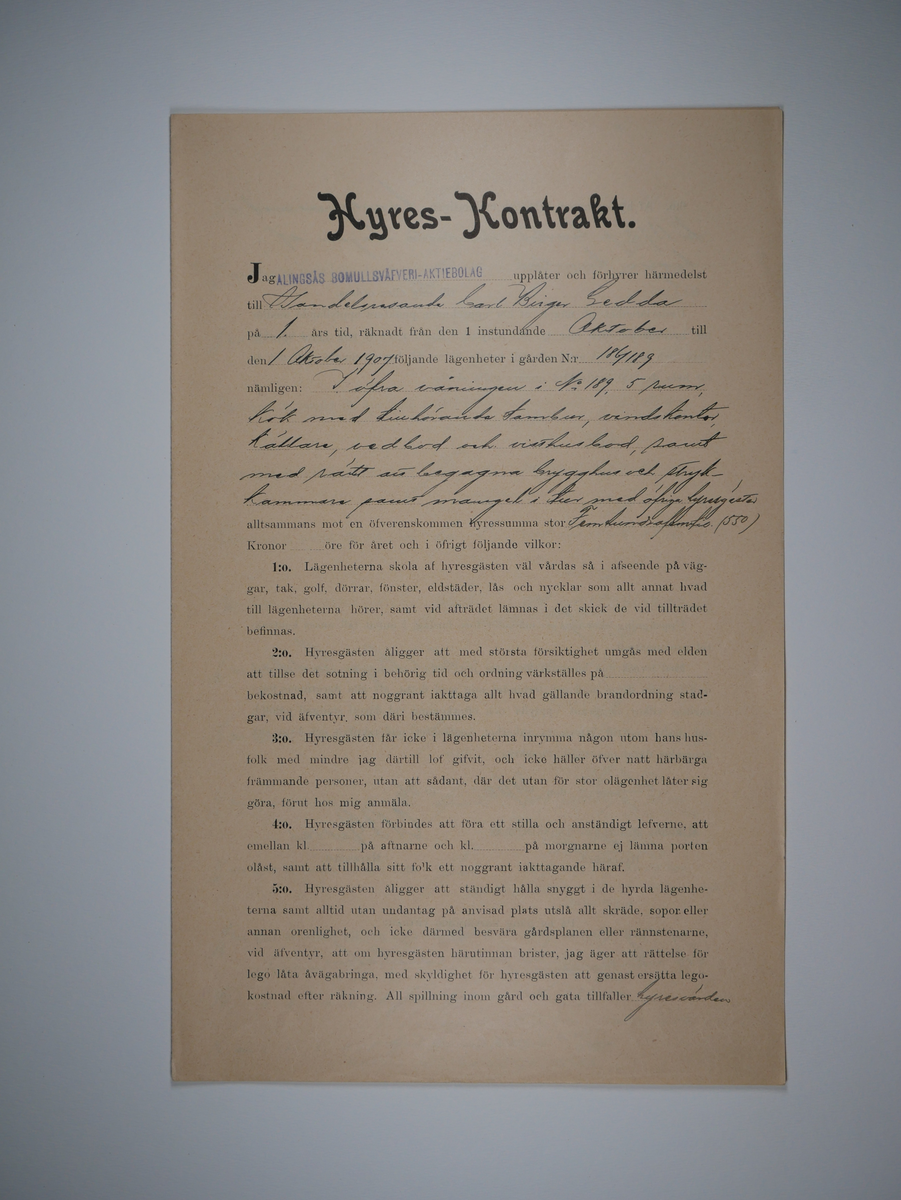 Hyres-Kontrakt.
Jag ALINGSÅS BOMULLSVÄFVERI-AKTIEBOLAG upplåter och förhyrer härmedelst
till Handelsresande Carl Birger Gedda
på 1. års tid, räknadt från den 1 instundande Oktober till
den 1 Oktober 1907 följande lägenheter i gården N:r 186/189
nämligen: I öfra våningen i No 189, 5 rum,
kök med tillhörande tambur, vindskontor,
källare, vedbod och visthusbod, samt
med rätt att begagna brygghus och stryk-
kammare samt mangel i tur med öfriga hyresgäster
alltsammans mot en öfverenskommen hyressumma stor Femhundrafemtio (550)
Kronor öre för året och i öfrigt följande vilkor:
1:o. Lägenheterna skola af hyresgästen väl vårdas så i afseende på väg-
gar, tak, golf, dörrar, fönster, eldstäder, lås och nycklar som allt annat hvad
till lägenheterna hörer, samt vid afträdet lämnas i det skick de vid tillträdet
befinnas.
2:o. Hyresgästen åligger att med största försiktighet umgås med elden
att tillse det sotning i behörig tid och ordning värkställes på
bekostnad, samt att noggrant iakttaga allt hvad gällande brandordning stad-
gar, vid äfventyr, som däri bestämmes.
3:o. Hyresgästen får icke i lägenheterna inrymma någon utom hans hus-
folk med mindre jag därtill lof gifvit, och icke häller öfver natt härbärga
främmande personer, utan att sådant, där det utan för stor olägenhet låter sig
göra, förut hos mig anmäla.
4:o. Hyresgästen förbindes att föra ett stilla och anständigt lefverne, att
emellan kl. på aftnarne och kl. på morgnarne ej lämna porten
olåst, samt att tillhålla sitt folk ett noggrant iakttagande häraf.
5:o. Hyresgästen åligger att ständigt hålla snyggt i de hyrda lägenhe-
terna samt alltid utan undantag på anvisad plats utslå allt skräde, sopor eller
annan orenlighet, och icke därmed besvära gårdsplanen eller rännstenarne,
vid äfventyr, att om hyresgästen härutinnan brister, jag äger att rättelse för
lego låta åvägabringa, med skyldighet för hyresgästen att genast ersätta lego-
kostnad efter räkning. All spillning inom gård och gata tillfaller hyresvärden